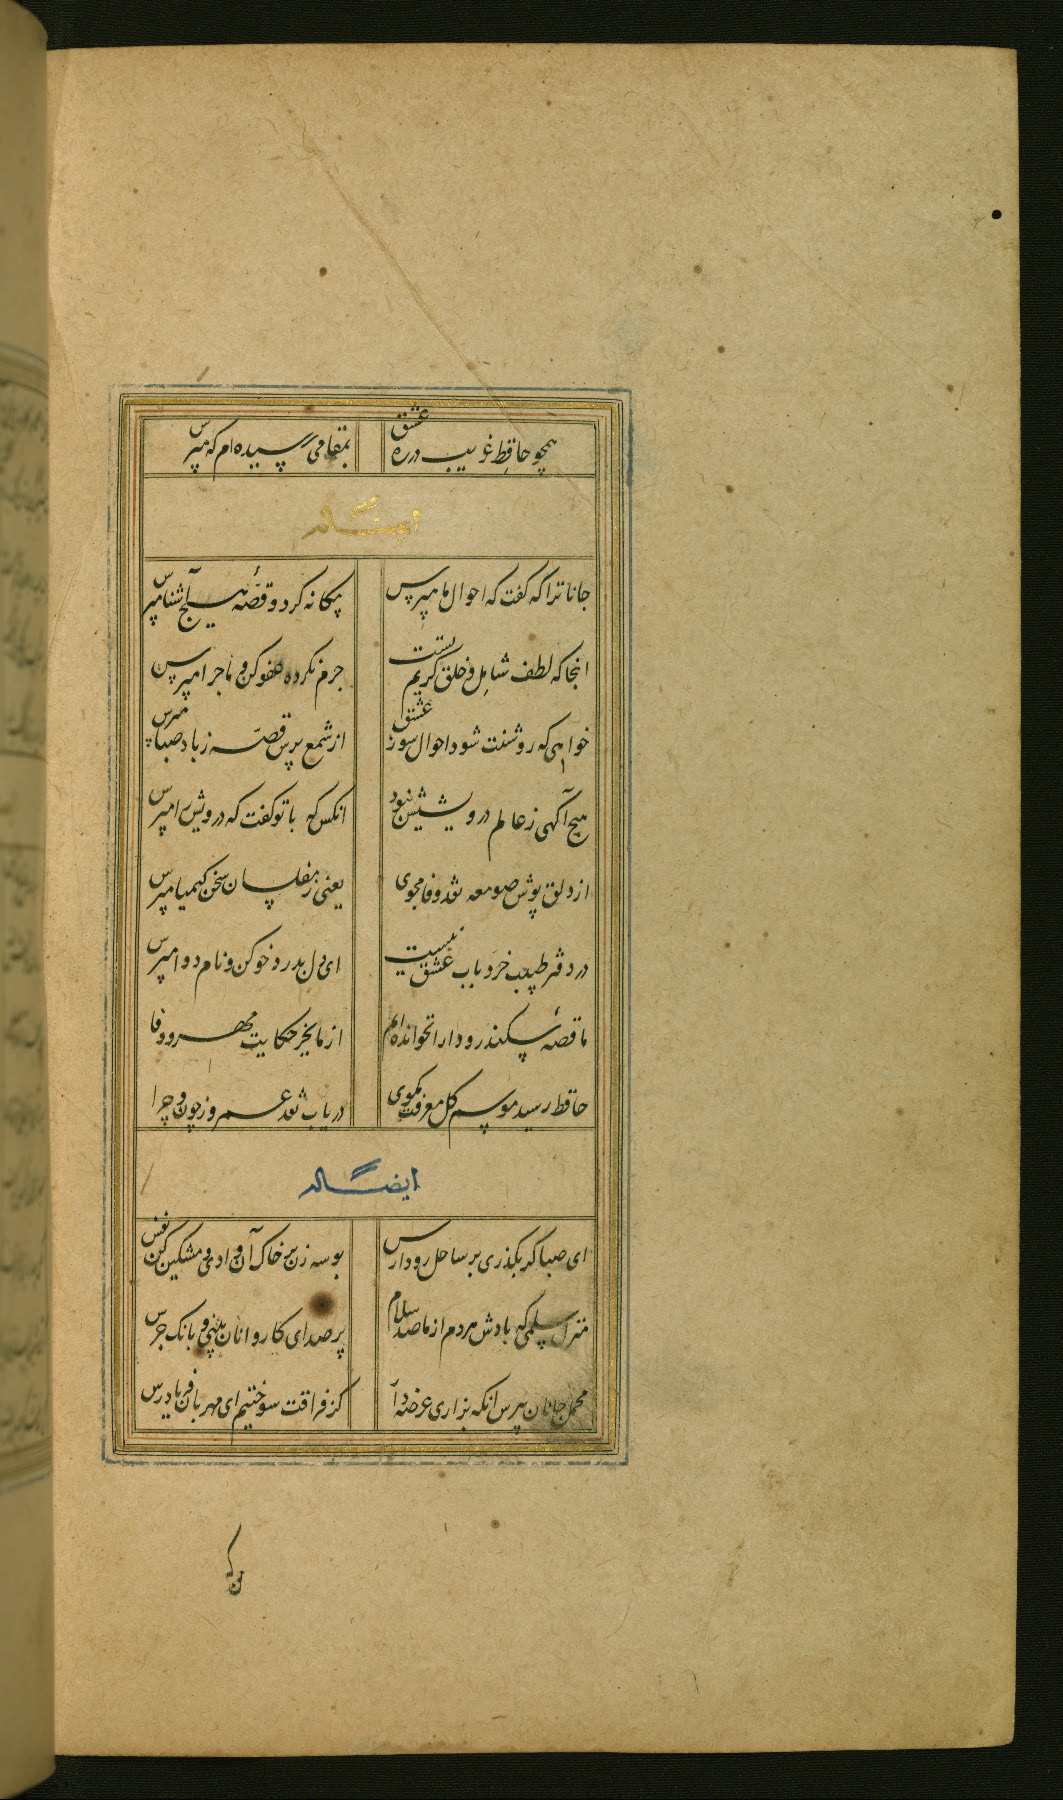 همچو حافظ غریب در ره عشق
بمقامی رسیده ام که مپرس
ایضاً له
جانا ترا که گفت که احوال ما مپرس
بیگانه کرد و قصهٔ هیچ آشنا مپرس
انجا که لطف شامل و خلق کریم تست
جرم نکرده عفو کن و ماجرا مپرس
خواهی که روشنت شود احوال سوز عشق
از شمع پرس قصّه ز باد صبا مپرس
هیچ آگهی ز عالم درویشیش نبود
انکس که با تو گفت که درویش را مپرس
از دلق پوش صومعه نقد وفا مجوی
یعنی ز مفلسان سخن کیمیا مپرس
در دفتر طبیب خرد باب عشق نیست
ای دل بدرد خو کن و نام دوا مپرس
ما قصهٔ سکندر و دارا نخوانده ایم
از ما بجز حکایت مهر و وفا
حافظ رسید موسم گل معرفت مگوی
دریاب نقد عمر و ز چون و چرا
ایضاً له
ای صبا گر بگذری بر ساحل رود ارس
بوسه زن بر خاک آن وادی و مشکین کن نفس
منزل سلمی که بادش هر دم از ما صد سلام
پر صدای کاروانان بینی و بانک جرس
محمل جانان ببوس انکه بزاری عرضه دار
کز فراقت سوختیم ای مهربان فریادرس
من که